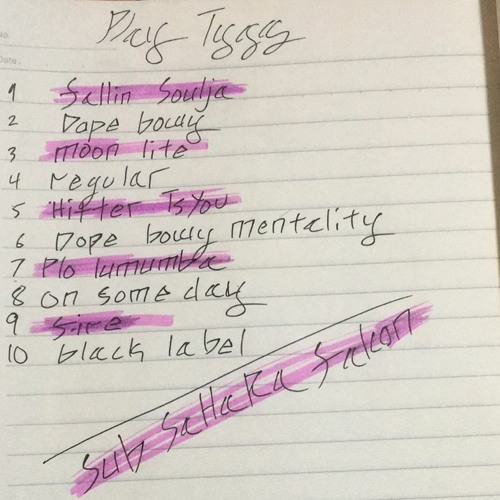 Play Tyggg
1 Sallin Soulja
2 Dope bowy
3 moon lite
4 regular
5 Hitter Is You
6 Dope bowy mentality
7 P/o lumumba
8 on some day
9 Sire
10 black label
Sub Sahara